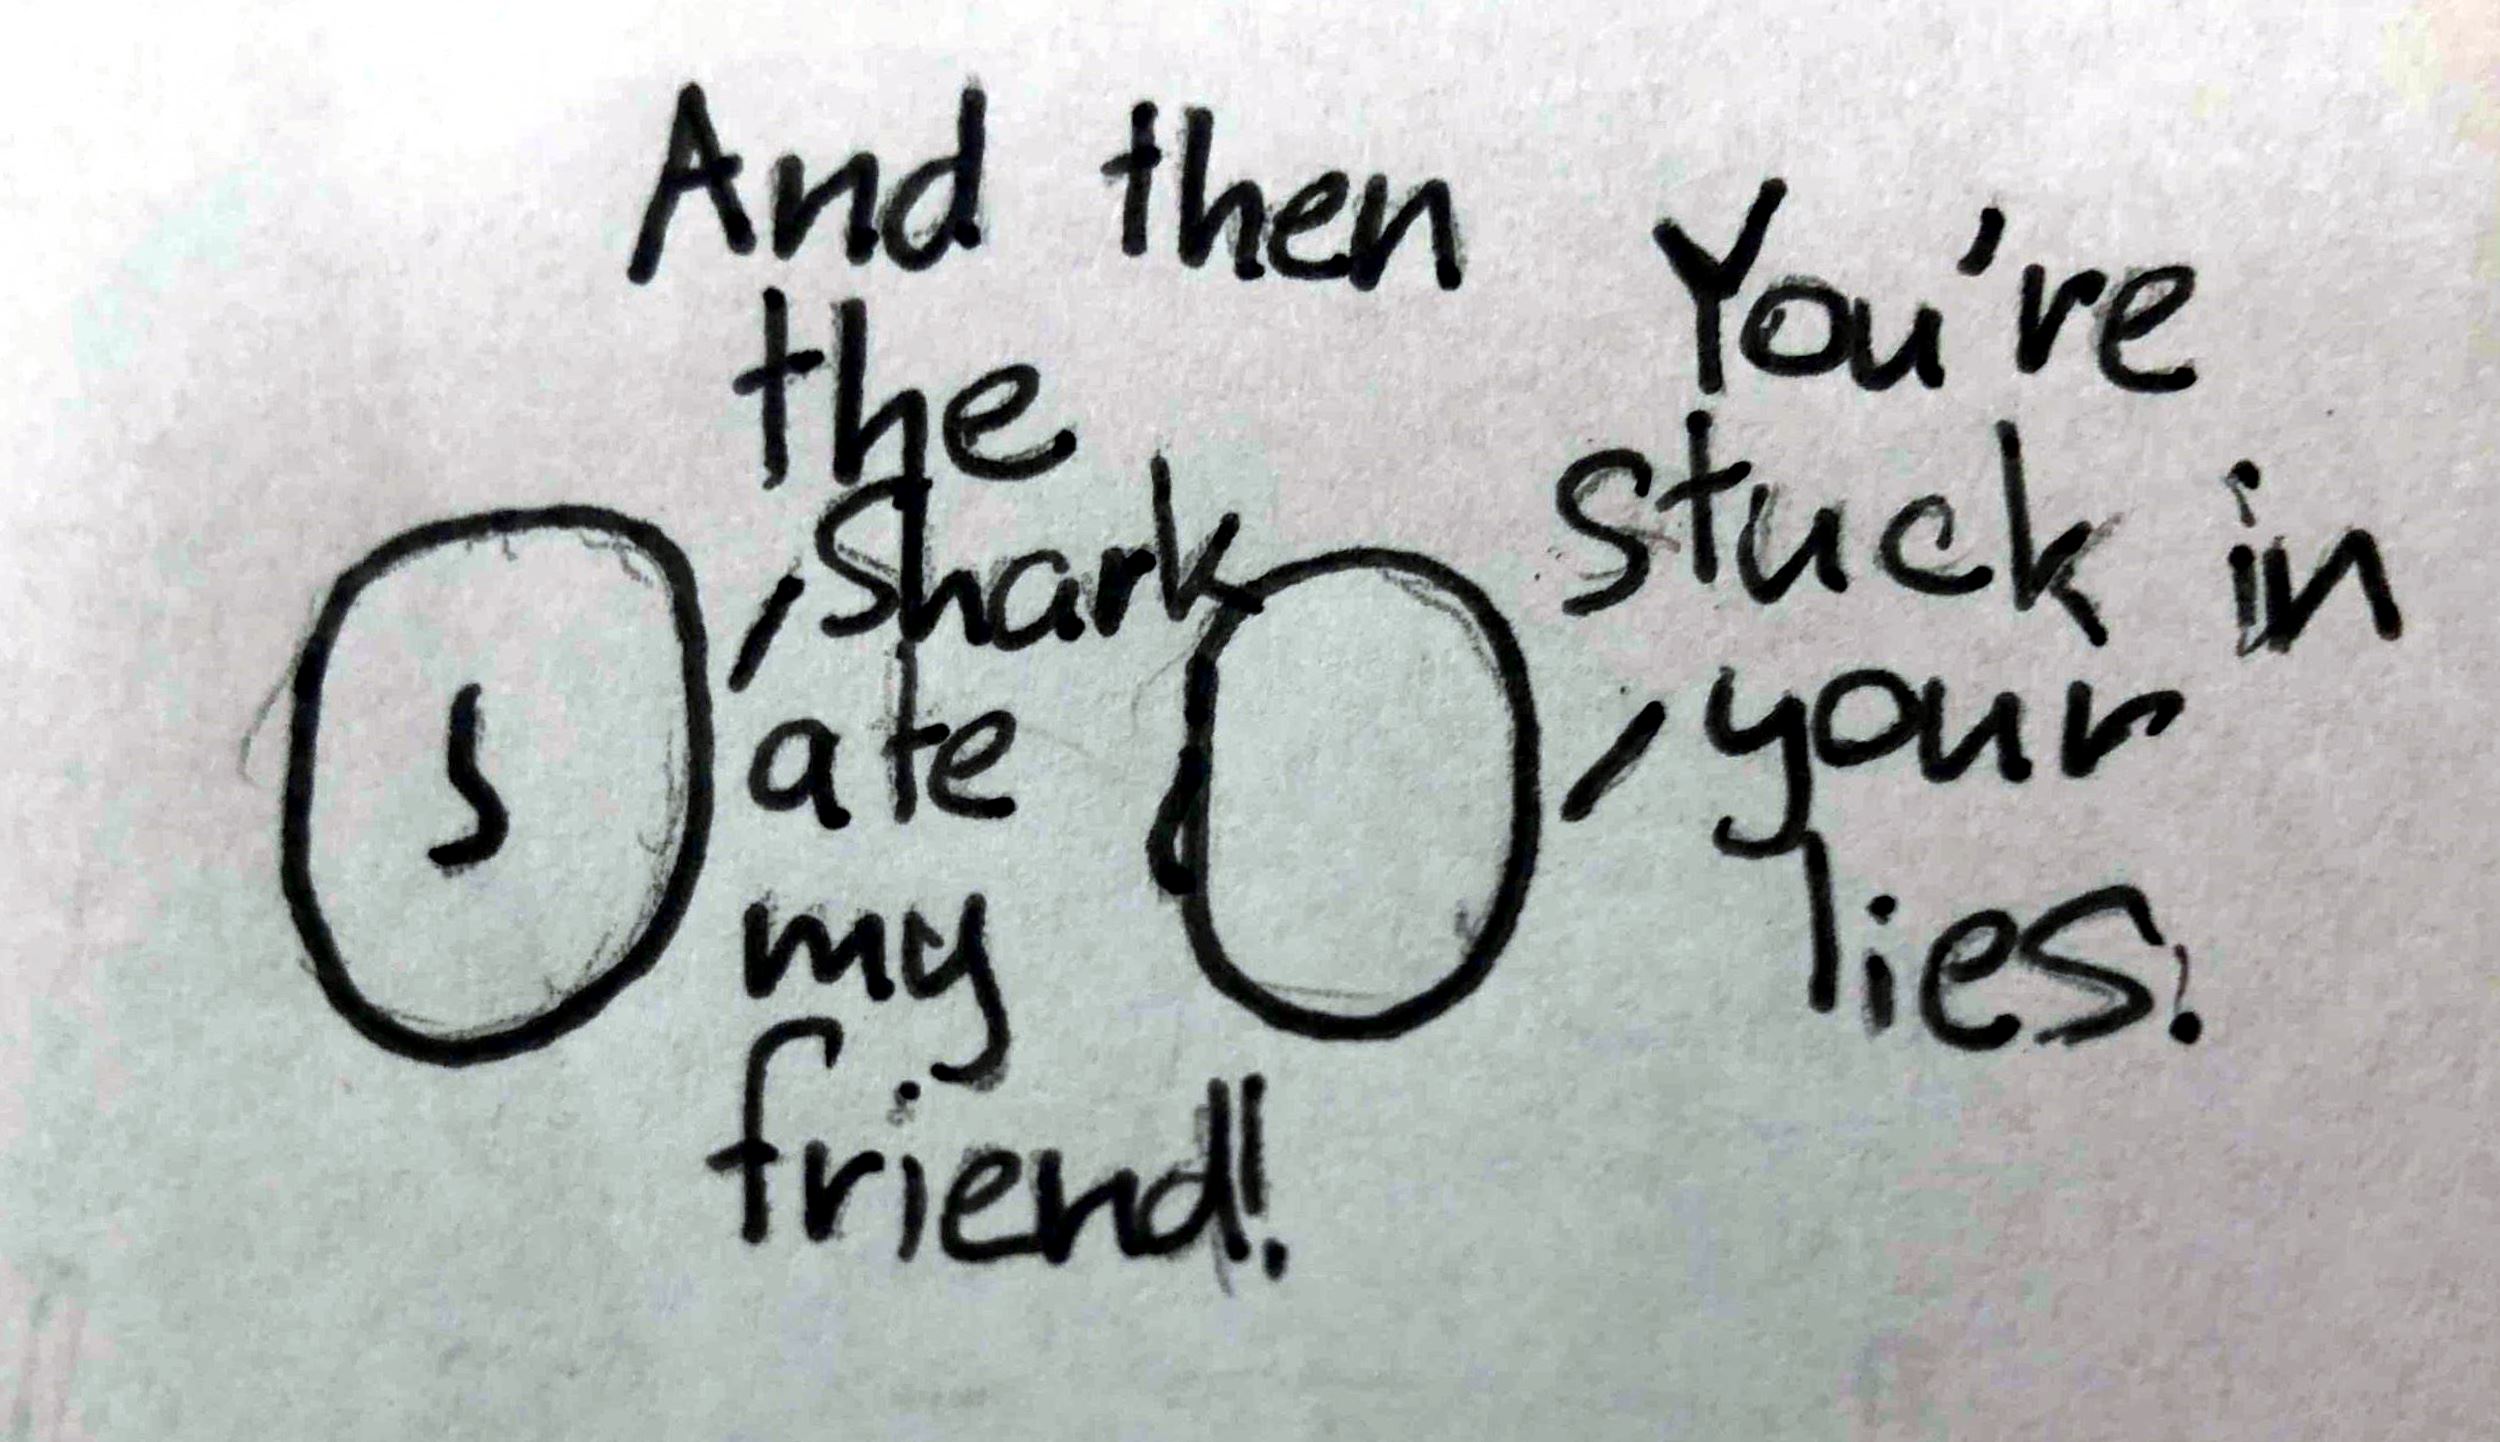 And then
the
shark
ate
my
friend!
You're
stuck in
your
lies.